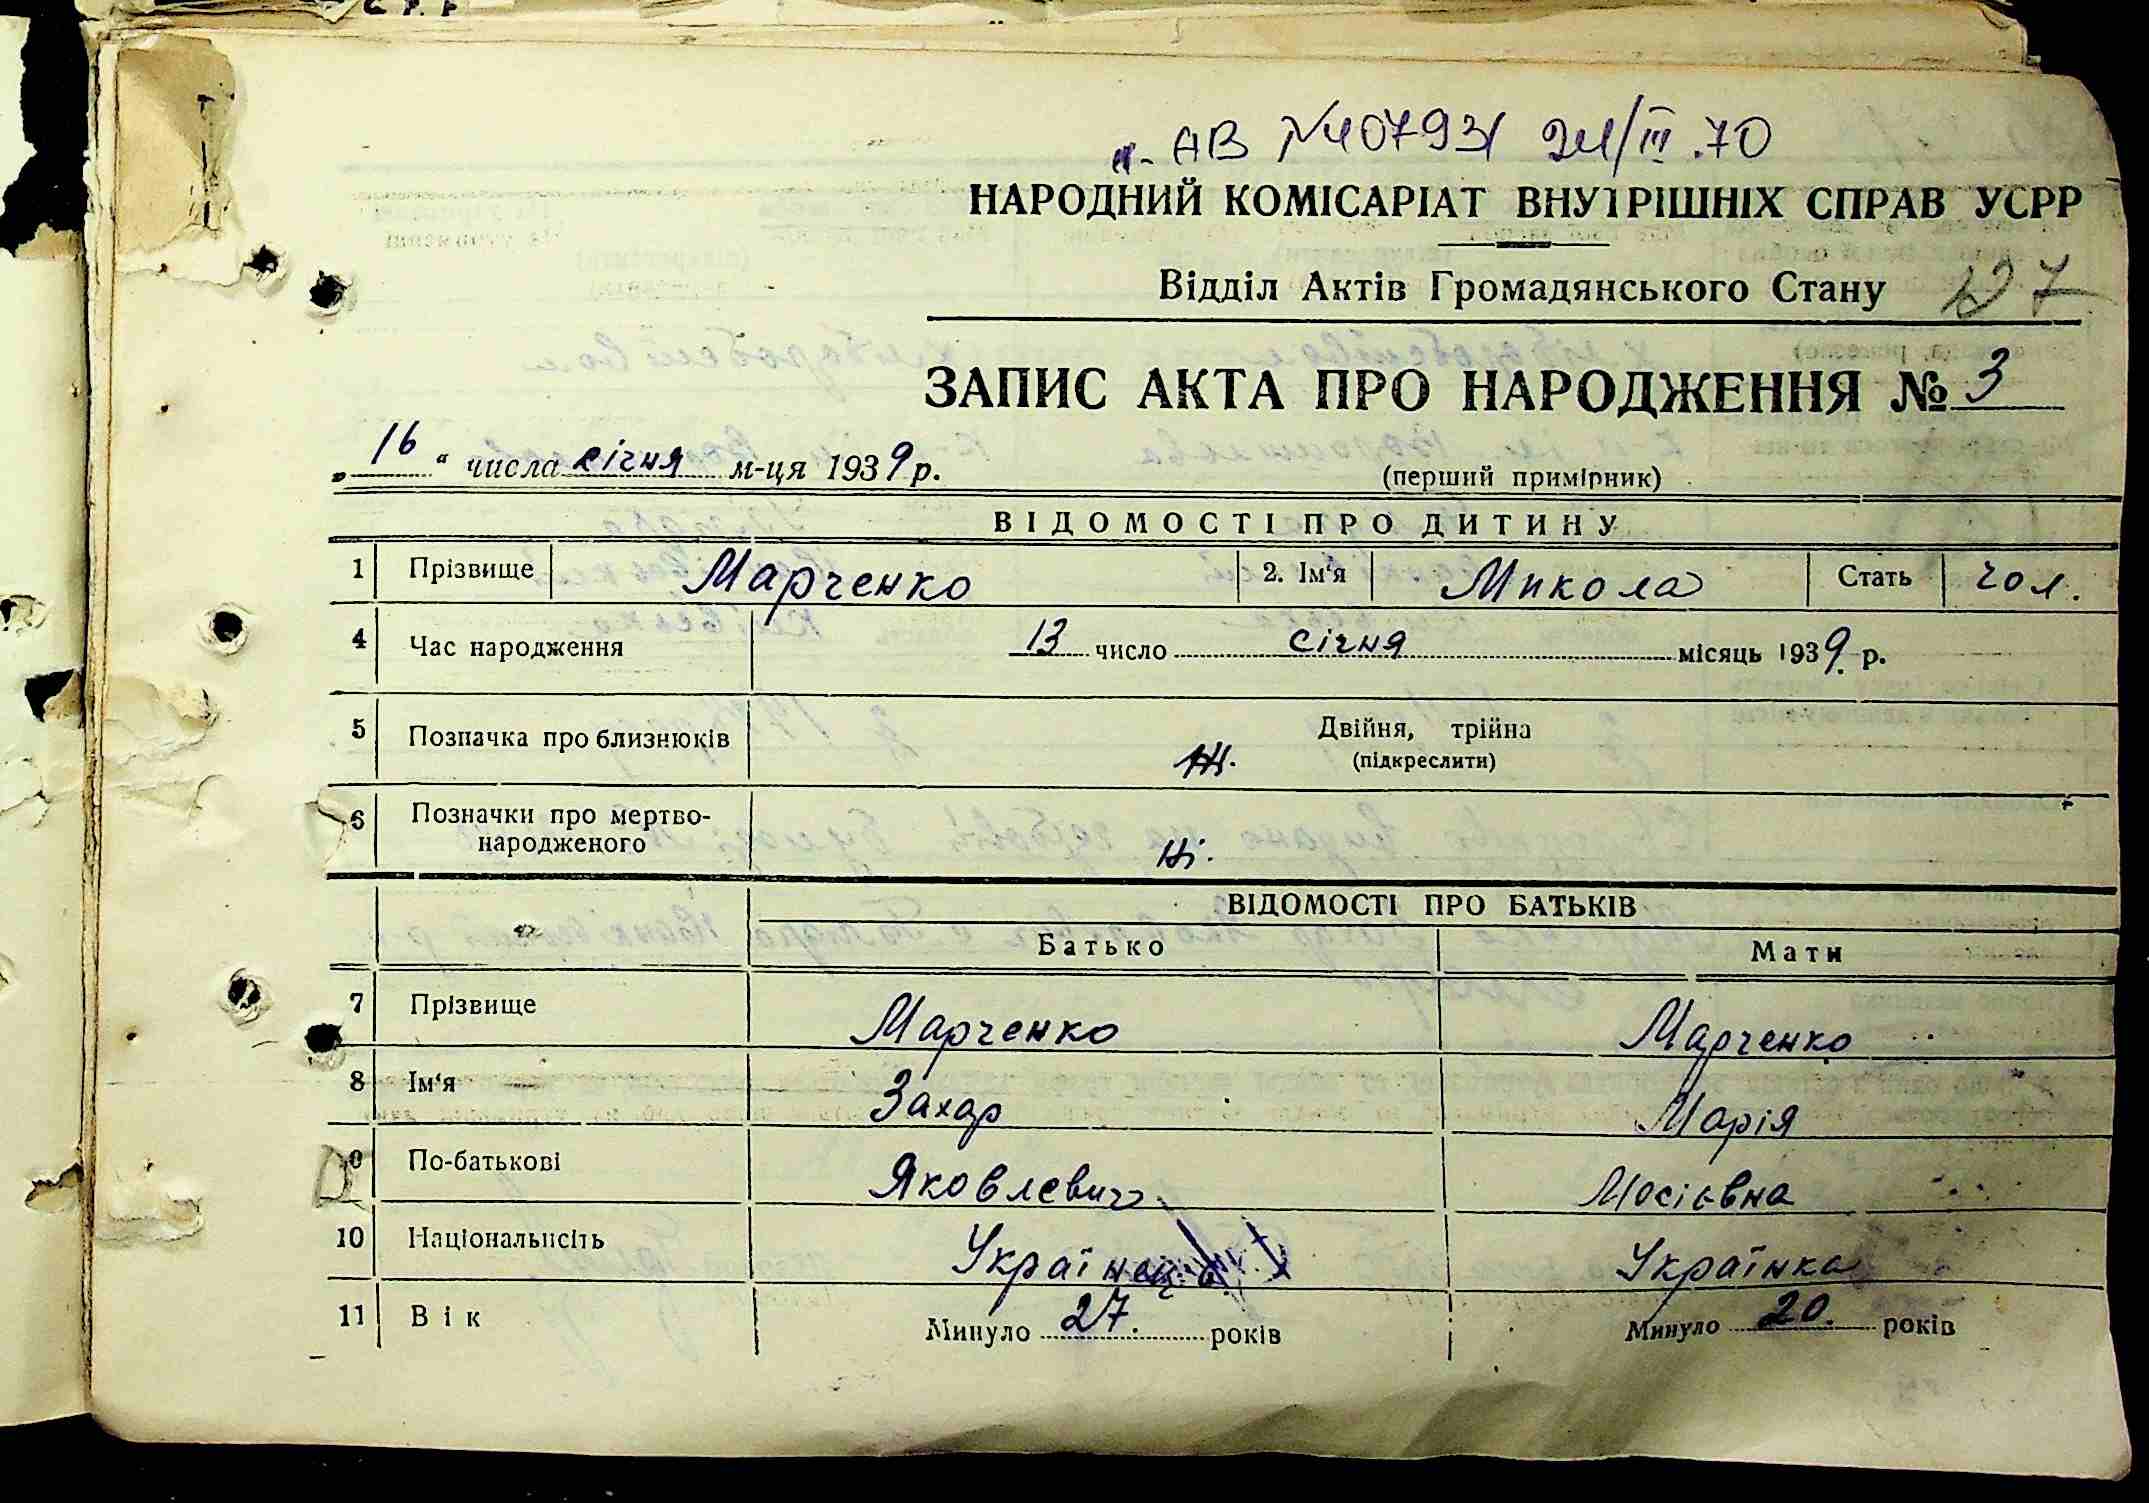 АВ №40793 24/III.70
НАРОДНИЙ КОМІСАРІАТ ВНУТРІШНІХ СПРАВ УСРР
Відділ Актів Громадянського Стану
ЗАПИС АКТА ПРО НАРОДЖЕННЯ № 3
„16“ числа січня м-ця 1939 р. (перший примірник)
ВІДОМОСТІ ПРО ДИТИНУ
1 Прізвище Марченко 2. Ім'я Микола Стать чол.
4 Час народження 13 число січня місяць 1939 р.
5 Позначка про близнюків Двійня, трійня
(підкреслити)
6 Позначки про мертво-
народженого Ні.
ВІДОМОСТІ ПРО БАТЬКІВ
Батько Мати
7 Прізвище Марченко Марченко
8 Ім'я Захар Марія
9 По-батькові Яковлевич Мосієвна
10 Національність Українець Українка
11 Вік Минуло 27. років Минуло 20. років